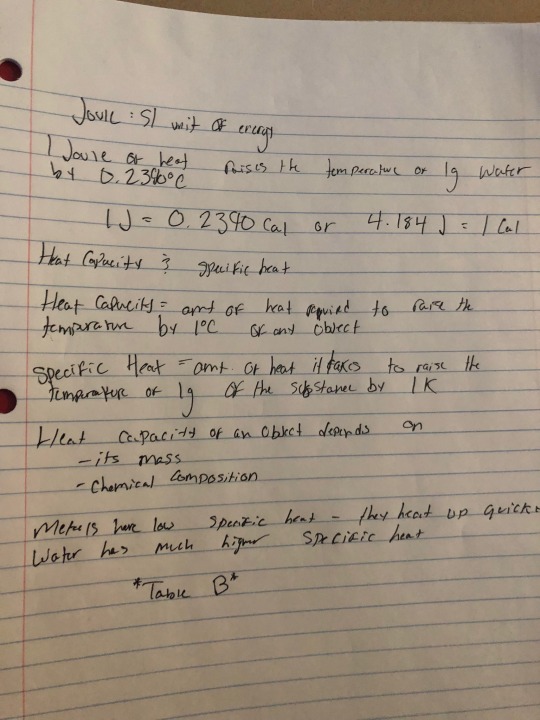 Joule : SI unit of energy
1 Joule of heat raises the temperature of 1g water
by 0.2390°C
1 J = 0.2390 Cal or 4.184 J = 1 Cal
Heat Capacity & specific heat
Heat Capacity = amt of heat required to raise the
temperature by 1°C of any object
Specific Heat = amt. of heat it takes to raise the
temperature of 1g of the substance by 1K
Heat capacity of an object depends on
- its mass
- Chemical Composition
Metals have low specific heat - they heat up quicker
Water has much higher specific heat
*Table B*